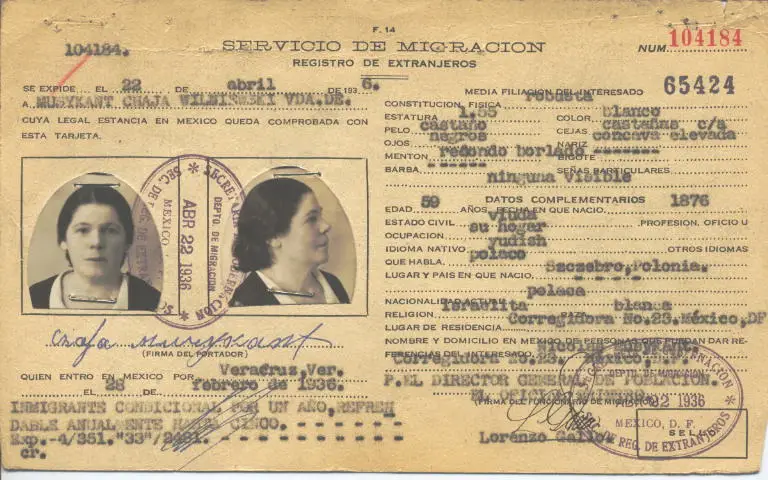 F. 14
104184.
SERVICIO DE MIGRACION
REGISTRO DE EXTRANJEROS
NUM. 104184
65424
SE EXPIDE EL 22 DE abril DE 1936.
A MUSYKANT CHAJA WILNISWSKI VDA.DE.
CUYA LEGAL ESTANCIA EN MEXICO QUEDA COMPROBADA CON
ESTA TARJETA.
SECRETARIA GOBERNACION
DEPTO. DE MIGRACION
ABR 22 1936
MEXICO
SEC. DE REG. DE EXTRANJEROS
Chaja Musykant
(FIRMA DEL PORTADOR)
QUIEN ENTRO EN MEXICO POR Veracruz,Ver.
EL 28 DE febrero de 1936.
INMIGRANTE CONDICIONAL POR UN AÑO, REFREN
DABLE ANUALMENTE HASTA CINCO.
Exp.-4/351."33"/2481.
cr.
MEDIA FILIACION DEL INTERESADO
CONSTITUCION FISICA robusta
ESTATURA 1.55 COLOR blanco
PELO castaño CEJAS castañas c/a
OJOS negros NARIZ concava elevada
MENTON redondo borlado BIGOTE -------
BARBA ----- SEÑAS PARTICULARES
ninguna visible
DATOS COMPLEMENTARIOS
EDAD 59 AÑOS. FECHA EN QUE NACIO. 1876
ESTADO CIVIL viuda PROFESION, OFICIO U
OCUPACION su hogar
IDIOMA NATIVO yudish OTROS IDIOMAS
QUE HABLA. polaco
LUGAR Y PAIS EN QUE NACIO. Szczebro,Polonia.
NACIONALIDAD ACTUAL polaca
RELIGION israelita RAZA blanca
LUGAR DE RESIDENCIA Corregidora No,23.México,DF
NOMBRE Y DOMICILIO EN MEXICO DE PERSONAS QUE PUEDAN DAR RE-
FERENCIAS DEL INTERESADO
Corregidora No. 23. México D.F.
P.EL DIRECTOR GENERAL DE POBLACION.
EL OFICIAL
(FIRMA DEL FUNCIONARIO DE MIGRACION)
Lorenzo
GOBERNACION
DEPTO. DE MIGRACION
1936
MEXICO, D. F.
SELLO
SEC. DE REG. DE EXTRANJEROS